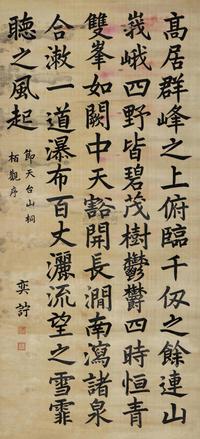 高居群峰之上俯臨千仞之餘連山
峩峨四野皆碧茂樹鬱鬱四時恒青
雙峯如闕中天豁開長澗南瀉諸泉
合漱一道瀑布百丈灑流望之雪霏
聽之風起
節天台山桐
栢觀序
奕詝